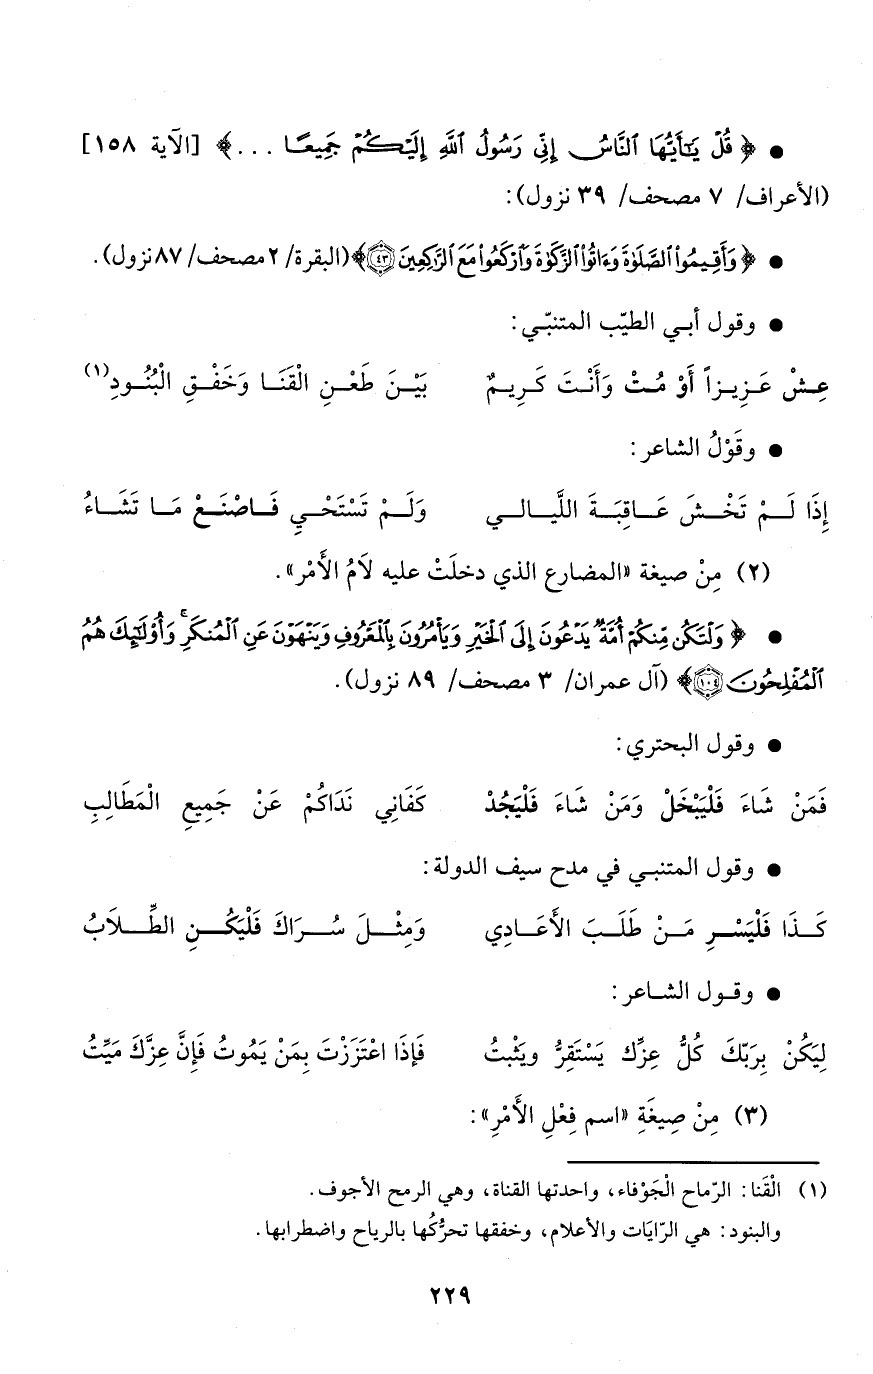 ● ﴿ قُلْ يَٰٓأَيُّهَا ٱلنَّاسُ إِنِّى رَسُولُ ٱللَّهِ إِلَيْكُمْ جَمِيعًا ...﴾ [الآية ١٥٨]
(الأعراف/ ٧ مصحف/ ٣٩ نزول):
● ﴿ وَأَقِيمُوا۟ ٱلصَّلَوٰةَ وَءَاتُوا۟ ٱلزَّكَوٰةَ وَٱرْكَعُوا۟ مَعَ ٱلرَّٰكِعِينَ ٤٣﴾(البقرة/ ٢ مصحف/ ٨٧ نزول).
● وقول أبي الطيّب المتنبّي:
عِشْ عَزِيزاً أَوْ مُتْ وَأَنْتَ كَرِيمٌ بَيْنَ طَعْنِ الْقَنَا وَخَفْقِ الْبُنُودِ(١)
● وقَوْلُ الشاعر:
إِذَا لَمْ تَخْشَ عَاقِبَةَ اللَّيَالِي وَلَمْ تَسْتَحْيِ فَاصْنَعْ مَا تَشَاءُ
(٢) مِنْ صيغة «المضارع الذي دخلَتْ عليه لاَمُ الأَمْر».
● ﴿ وَلْتَكُن مِّنكُمْ أُمَّةٌ يَدْعُونَ إِلَى ٱلْخَيْرِ وَيَأْمُرُونَ بِٱلْمَعْرُوفِ وَيَنْهَوْنَ عَنِ ٱلْمُنكَرِ ۚ وَأُو۟لَٰٓئِكَ هُمُ
ٱلْمُفْلِحُونَ ١٠٤﴾ (آل عمران/ ٣ مصحف/ ٨٩ نزول).
● وقول البحتري:
فَمَنْ شَاءَ فَلْيَبْخَلْ وَمَنْ شَاءَ فَلْيَجُدْ كَفَانِي نَدَاكُمْ عَنْ جَمِيعِ الْمَطَالِبِ
● وقول المتنبي في مدح سيف الدولة:
كَذَا فَلْيَسْرِ مَنْ طَلَبَ الأَعَادِي وَمِثْلَ سُرَاكَ فَلْيَكُنِ الطِّلاَبُ
● وقول الشاعر:
لِيَكُنْ بِرَبِّكَ كُلُّ عِزِّك يَسْتَقِرُّ ويَثْبتُ فَإِذَا اعْتَزَزْتَ بِمَنْ يَمُوتُ فَإِنَّ عِزَّكَ مَيِّتُ
(٣) مِنْ صِيغَةِ «اسم فِعْلِ الأَمْرِ»:
(١) الْقَنا: الرّماح الْجَوْفاء، واحدتها القناة، وهي الرمح الأجوف.
والبنود: هي الرّايَات والأعلام، وخفقها تحرُّكُها بالرياح واضطرابها.
٢٢٩